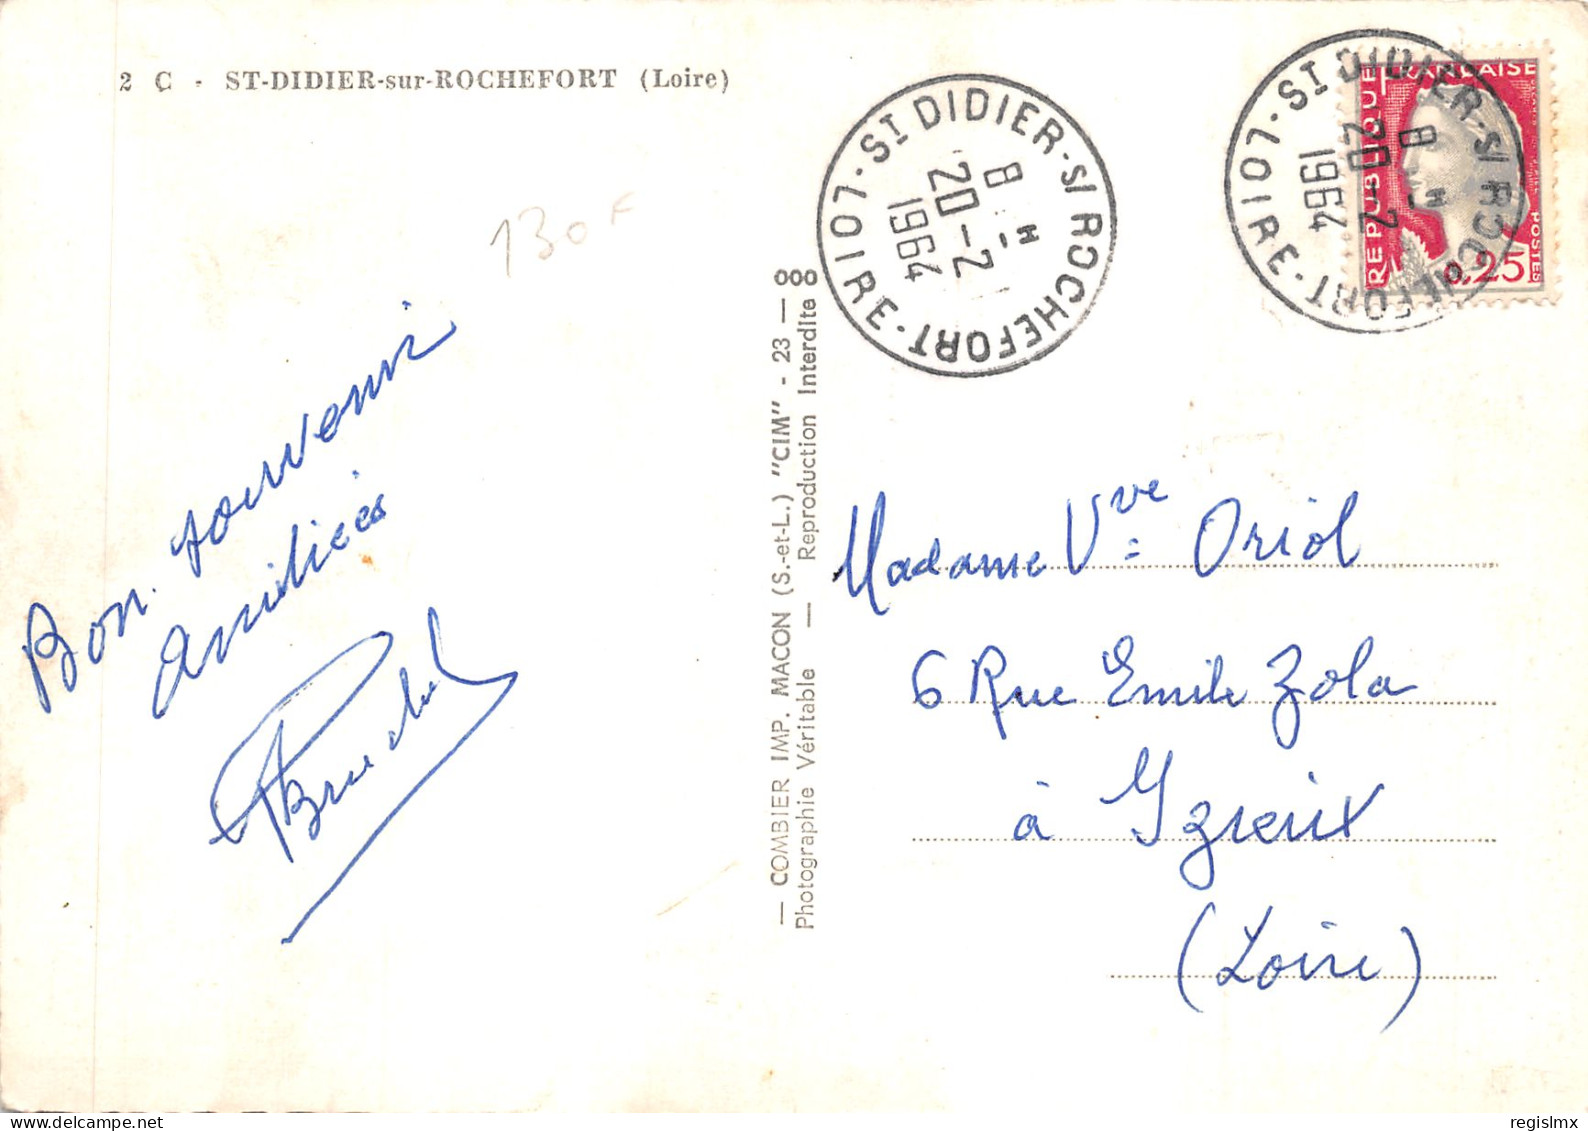 2 C - ST-DIDIER-sur-ROCHEFORT (Loire)
130 F
Bon souvenir
Amitiés
— COMBIER IMP. MACON (S.-et-L.) "CIM" - 23 — 000
Photographie Véritable — Reproduction Interdite
ST DIDIER-S/ ROCHEFORT · LOIRE ·
8 - H
20 - 2
1964
ST DIDIER-S/ ROCHEFORT · LOIRE ·
8 - H
20 - 2
1964
REPUBLIQUE FRANÇAISE
POSTES
0,25
Madame Vve Oriol
6 Rue Emile Zola
à Yzieux
(Loire)
regislmx